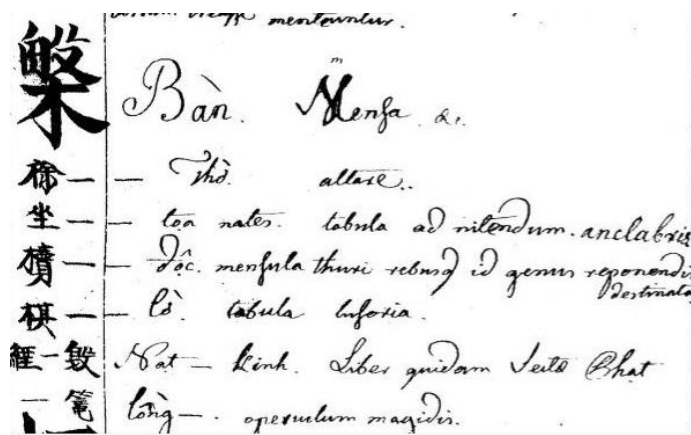 槃 Bàn. Mensa. &c.
— — Thờ. altare..
坐 — — tọa nates. tabula ad nitendum. anclabris
櫝 — — độc. mensula thuri rebusq id genus reponendis
destinata
棋 — — Cờ. tabula lusoria.
經 — Nat — kinh. Liber quidam Sectæ Phat
— 篭 lồng —. operculum magidis.